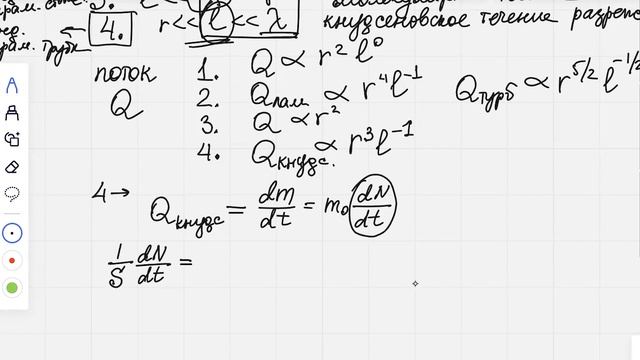 4. r << l << λ
кнудсеновское течение
поток 1. Q ∝ r² l⁰
Q 2. Qлам ∝ r⁴ l⁻¹ Qтурб ∝ r^{5/2} l^{-1/2}
3. Q ∝ r²
4. Qкнудс. ∝ r³ l⁻¹
4 → Qкнудс = dm/dt = m₀ dN/dt
1/S dN/dt =